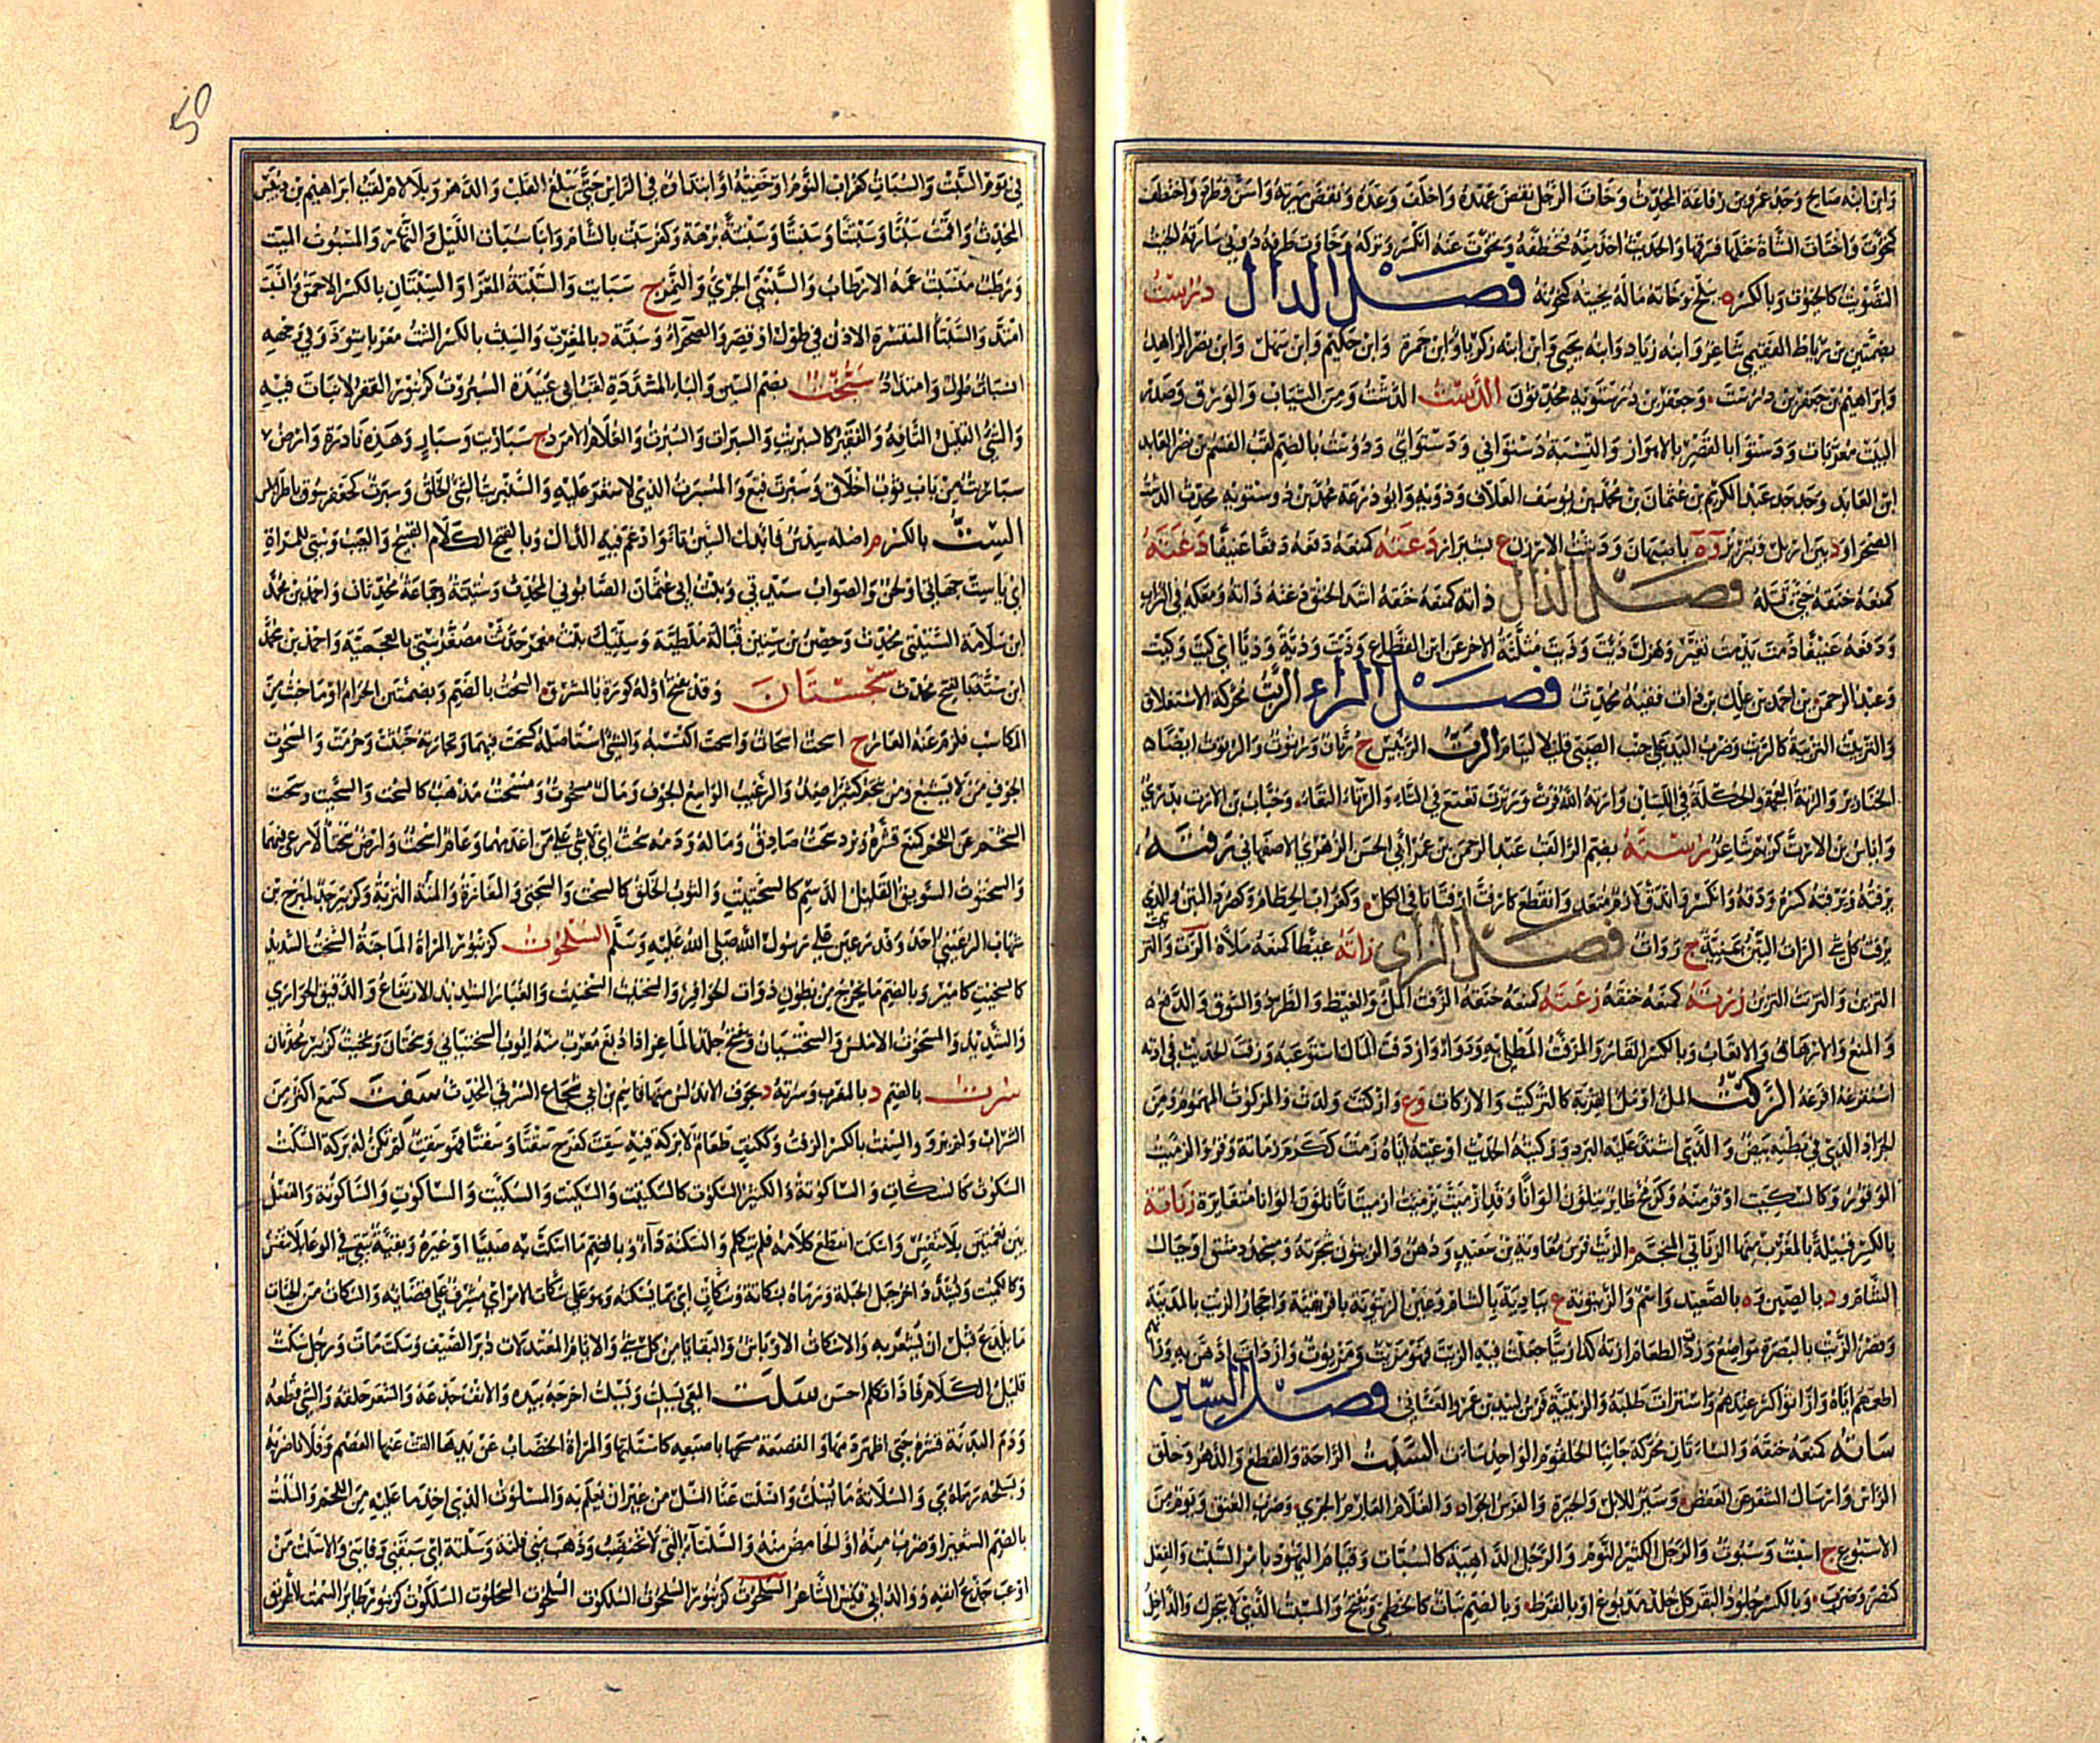 وابن ابنه صالح وجد عمرو بن رفاعة المحدث وخات الرجل نقض عهده واخلف وعده ونقص ميرته واسن وطرد واختطف
كخوت واختات الشاة ختلها فسرقها والحديث اخذ منه فتخطفه وتخوت عنه انكسر وتركه وخاوت طرفه دوني سارقه الخيت
التصويت كالخيوت وبالكسر ه ببلخ وخاته ماله يخيته كتخوته فصل الدال درست
بضمتين بن رباط الفقيمي شاعر وابنه زياد وابنه يحيى وابن ابنه زكريا وابن حمزة وابن حكيم وابن سهل وابن نصر الزاهد
وابراهيم بن جعفر بن درست وجعفر بن درستويه محدثون الدست الدشت ومن الثياب والورق وصدر
البيت معربات ودستوا بالقصر بالاهواز والنسبة دستواني ودستوائي ودوست بالضم لقب القسم بن نصر العابد
ابن العابد وجد جد عبد الكريم بن عثمان بن محمد بن يوسف العلاف وذويه وابو زرعة محمد بن دوستويه محدث الدشت
الصحراء ود بين اربل وتبريز وة باصبهان ودشت الارزن ع بشيراز دعته كمنعه دفعه دفعا عنيفا دغته
كمنعه خنقه حتى قتله فصل الذال ذاته كمنعه خنقه اشد الخنق ذعته ذاته ومعكه في التراب
ودفعه عنيفا ذمت يذمت تغير وهزل ذيت وذيت مثلثة الاخر عن ابن القطاع وذيت وذية وذيا اي كيت وكيت
وعبد الرحمن بن احمد بن علك بن ذات فقيه محدث فصل الراء الربت محركة الاستغلاق
والتربيت التربية كالربت وضرب اليد على جنب الصبي قليلا لينام الرت الرئيس ج رتان ورتوت والرتوت ايضا
الخنازير والرتة العجمة والحكلة في اللسان وارته الله فرت ورترت تعتع في التاء والرتاء النقاء وخباب بن الارت بدري
واياس بن الارت كريم شاعر رسته بضم الراء لقب عبد الرحمن بن عمر ابي الحسن الزهري الاصفهاني رفته
يرفته ويرفته كسره ودقه وانكسر واندق لازم متعد وانقطع كارفت ارفتاتا في الكل وكغراب الحطام وكصرد التبن والذي
يرفت كل شئ الرات التبن يمنية ج روات فصل الزاي زاته غيظا كمنعه ملأه الزت والتزتت
التزين والترت التزين زرته كمنعه خنقه زعته كمنعه خنقه الزفت الملء والغيظ والطرد والسوق والدفع
والمنع والارهاق والاتعاب وبالكسر القار والمزفت المطلي به ودواء وازدفت المال استوعبه وزفت الحديث في اذنه
استفرغه افرغه الزكت الملء او ملء القربة كالتزكيت والازكات وع وازكتت ولدت والمزكوت المهموم ومن
الجراد الذي في بطنه بيض والذي اشتد عليه البرد وزكته الحديث اوعيته اياه زمت ككرم زماتة وقر والزميت
الوقور وكالسكيت اوقر منه وكزمج طاير يتلون الوانا وقد ازمت يزمئت ازمئتاتا تلون الوانا متغايرة زناتة
بالكسر قبيلة بالمغرب منها الزناتي المنجم الزيت فرس معاوية بن سعد ودهن والزيتون شجرته ومسجد دمشق او جبال
الشام ود بالصين وة بالصعيد واسم والزيتونة ع ببادية بالشام وعين الزيتونة بافريقية واحجار الزيت بالمدينة
وقصر الزيت بالبصرة مواضع وزت الطعام ازيته كذا زيتا جعلت فيه الزيت فهو مزيت ومزيوت وازدات ادهن به وزاتهم
اطعمهم اياه وازاتوا كثر عندهم واستزات طلبه والزيتية فرس لبيد بن عمرو الغساني فصل السين
سأته كمنعه خنقه والسأتان محركة جانبا الحلقوم الواحد سأت السبت الراحة والقطع والدهر وحلق
الراس وارسال الشعر عن العقص وسير للابل والحيرة والفرس الجواد والغلام العارم الجري وضرب العنق ويوم من
الاسبوع ج اسبت وسبوت والرجل الكثير النوم والرجل الداهية كالسبات وقيام اليهود بامر السبت والفعل
كنصر وضرب وبالكسر جلود البقر كل جلد مدبوغ او بالقرظ وبالضم نبات كالخطمي ويفتح والمسبت الذي لا يتحرك والداخل
في يوم السبت والسبات كغراب النوم او خفيته او ابتداؤه في الراس حتى يبلغ القلب والدهر وبلا لام لقب ابراهيم بن دبيس
المحدث واقمت سبتا وسبتة وسنبتا وسنبتة برهة وكفر سبت بالشام وابنا سبات الليل والنهار والمسبوت الميت
ورطب منسبت عمه الارطاب والسبنتى الجري والنمر ج سبانت والسبتة المعزا والسبتان بالكسر الاحمق وانسبت
امتد والسبتاء المنتشرة الاذن في طول او قصر والصحراء وسبتة د بالمغرب والسبت بالكسر الشبت معرباً شوذ وفي وجهه
انسبات طول وامتداد سبخت بضم السين والباء المشددة لقب ابي عبيدة السبروت كزنبور القفر لا نبات فيه
والشئ القليل التافه والفقير كالسبريت والسبرات والسبرت والغلام الامرد ج سباريت وسبارٍ وهذه نادرة وارض
سباريت من باب ثوب اخلاق وسبرت قنع والمسبرت الذي لا شعر عليه والسنبريت السئ الخلق وسبرت كجعفر سوق باطرابلس
الست بالكسر م اصله سدس فابدل السين تاء وادغم فيه الدال وبالفتح الكلام القبيح والعيب وستي للمراة
اي يا ست جهاتي او لحن والصواب سيدتي وبنت ابي عثمان الصابوني المحدث وستيتة جماعة محدثات واحمد بن محمد
ابن سلامة الستيتي محدث وحصن بن ستين قبالة ملطية وستيك بنت معمر حدثت مصغر ستي بالعجمية واحمد بن محمد
ابن ستة بالفتح محدث سجستان وقد يفتح اوله كورة بالمشرق السحت بالضم وبضمتين الحرام او ما خبث من
المكاسب فلزم عنه العار ج اسحات واسحت اكتسبه والشئ استاصله كسحت فيهما وتجارته خبثت وحرمت والسحوت
الجوف من لا يشبع ومن يتخم كثيرا ضد والرغيب الواسع الجوف ومال مسحوت ومسحت مذهب كالسحت والسحيت وسحت
الشحم عن اللحم كمنع قشره وبرد سحت صادق وماله ودمه سحت اي لا شئ على من اعدمهما وعام اسحت وارض سحتاء لا رعي فيهما
والسحتوت السويق القليل الدسم كالسحتيت والثوب الخلق كالسحت والسحتي والمفازة اللينة التربة وكزبير جد لمبرح بن
شهاب الرعيني احد وفد رعين على رسول الله صلى الله عليه وسلم السلحوت كزنبور المراة الماجنة السخت الشديد
كالسخيت كامير وبالضم ما يخرج من بطون ذوات الحوافر والسخت السختيت والغبار الشديد الارتفاع والدقيق الحواري
والشديد والمسخوت الاملس والسختيان ويفتح جلد الماعز اذا دبغ معرب منه ايوب السختياني وسختان وسخيت كزبير محدثان
سرت بالضم د بالمغرب وسرتة د بجوف الاندلس منها قاسم بن ابي شجاع السرتي المحدث سفت كسمع اكثر من
الشراب ولم يرو والسفت بالكسر الزفت وككتف طعام لا بركة فيه سقت كفرح سقتا وسقتا فهو سقت لم تكن له بركة السكت
السكوت كالسكات والساكوتة والكثير السكوت كالسكيت والسكيت والسكتيت والساكوت والساكوتة والفصل
بين نغمتين بلا تنفس واسكت انقطع كلامه فلم يتكلم والسكتة داء وبالضم ما اسكت به صبيا او غيره وبقية تبقى في الوعاء كالنقر
وكالكميت ويشدد آخر خيل الحلبة ورماه بسكاتة وسكات اي بما يسكته وهو على سكات الامر اي مشرف على قضائه والسكات من الحيات
ما يلدغ قبل ان يشعر به والاسكات الاوباش والبقايا من كل شئ والايام المعتدلات دبر الصيف وسكت مات ورجل سكت
قليل الكلام فاذا تكلم احسن سلت المعى يسلت ويسلت اخرجه بيده والانف جدعه والشعر حلقه والشئ قطعه
ودم البدنة قشره حتى اظهر دمها والقصعة مسحها باصبعه كاستلتها والمراة الخضاب عن يدها القت عنها العصم وفلانا ضربه
وبسلحه رماه به والسلاتة ما يسلت وانسلت عنا انسل من غير ان يعلم به والمسلوت الذي اخذ ما عليه من اللحم والسلت
بالضم الشعير او ضرب منه او الحامض منه والسلتاء التي لا تختضب وذهب مني فلتة وسلتة اي سبقني وفاتني والاسلت من
اوعب جدع انفه ووالد ابي قيس الشاعر السلحوت كزنبور السلحوت السلكوت كزنبور طائر السمت الطريق
50